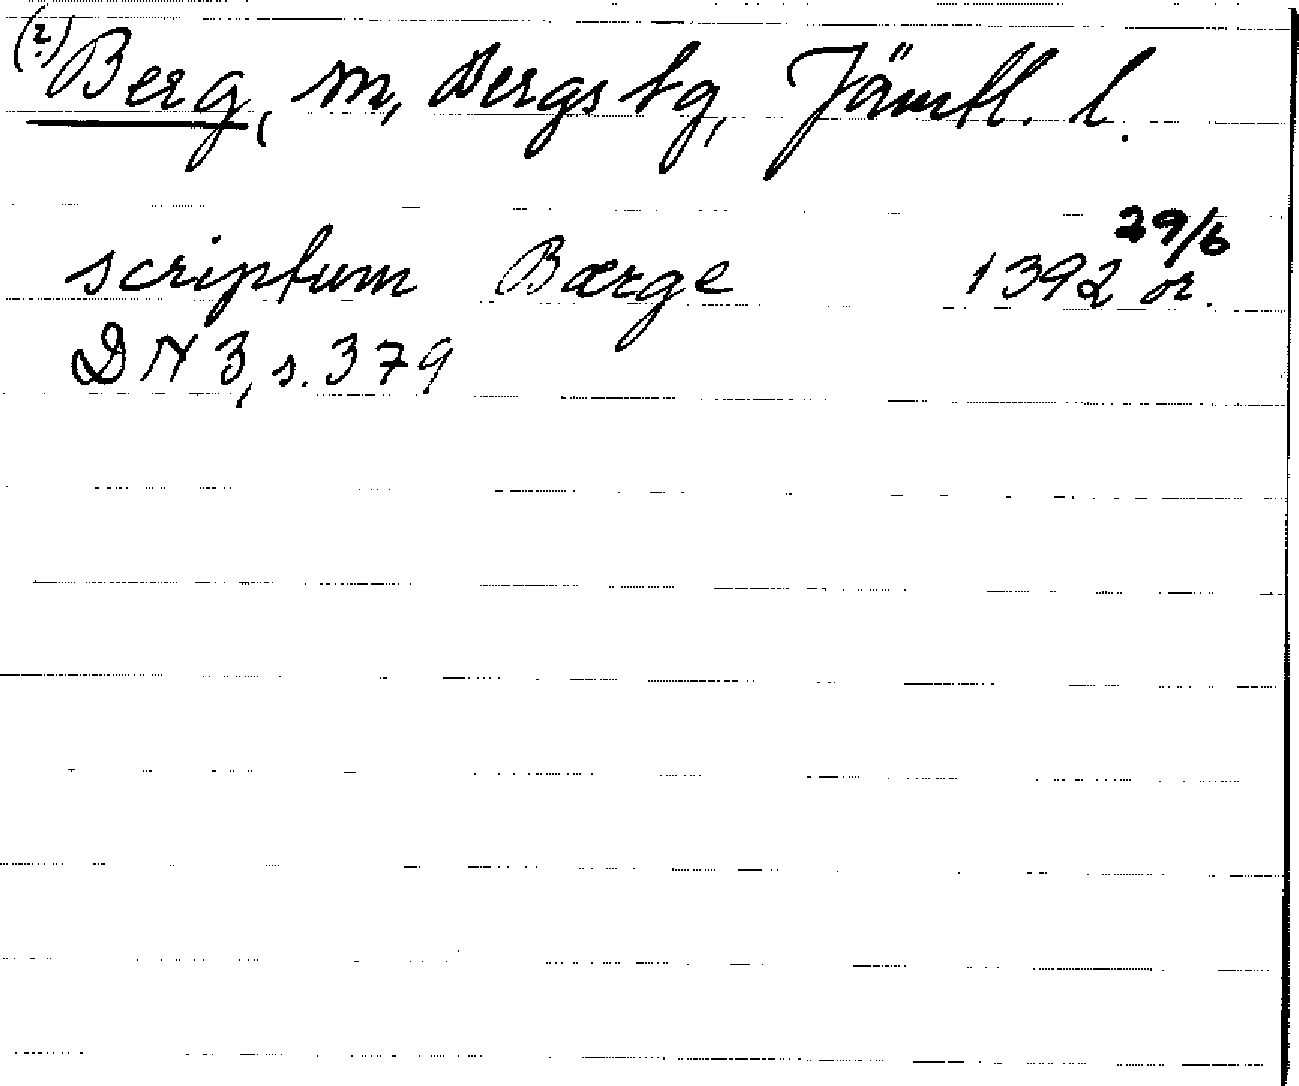 (?) Berg, sn, Bergs tg, Jämtl. l.
scriptum Bærge 1392 29/6 or.
DN 3, s. 379